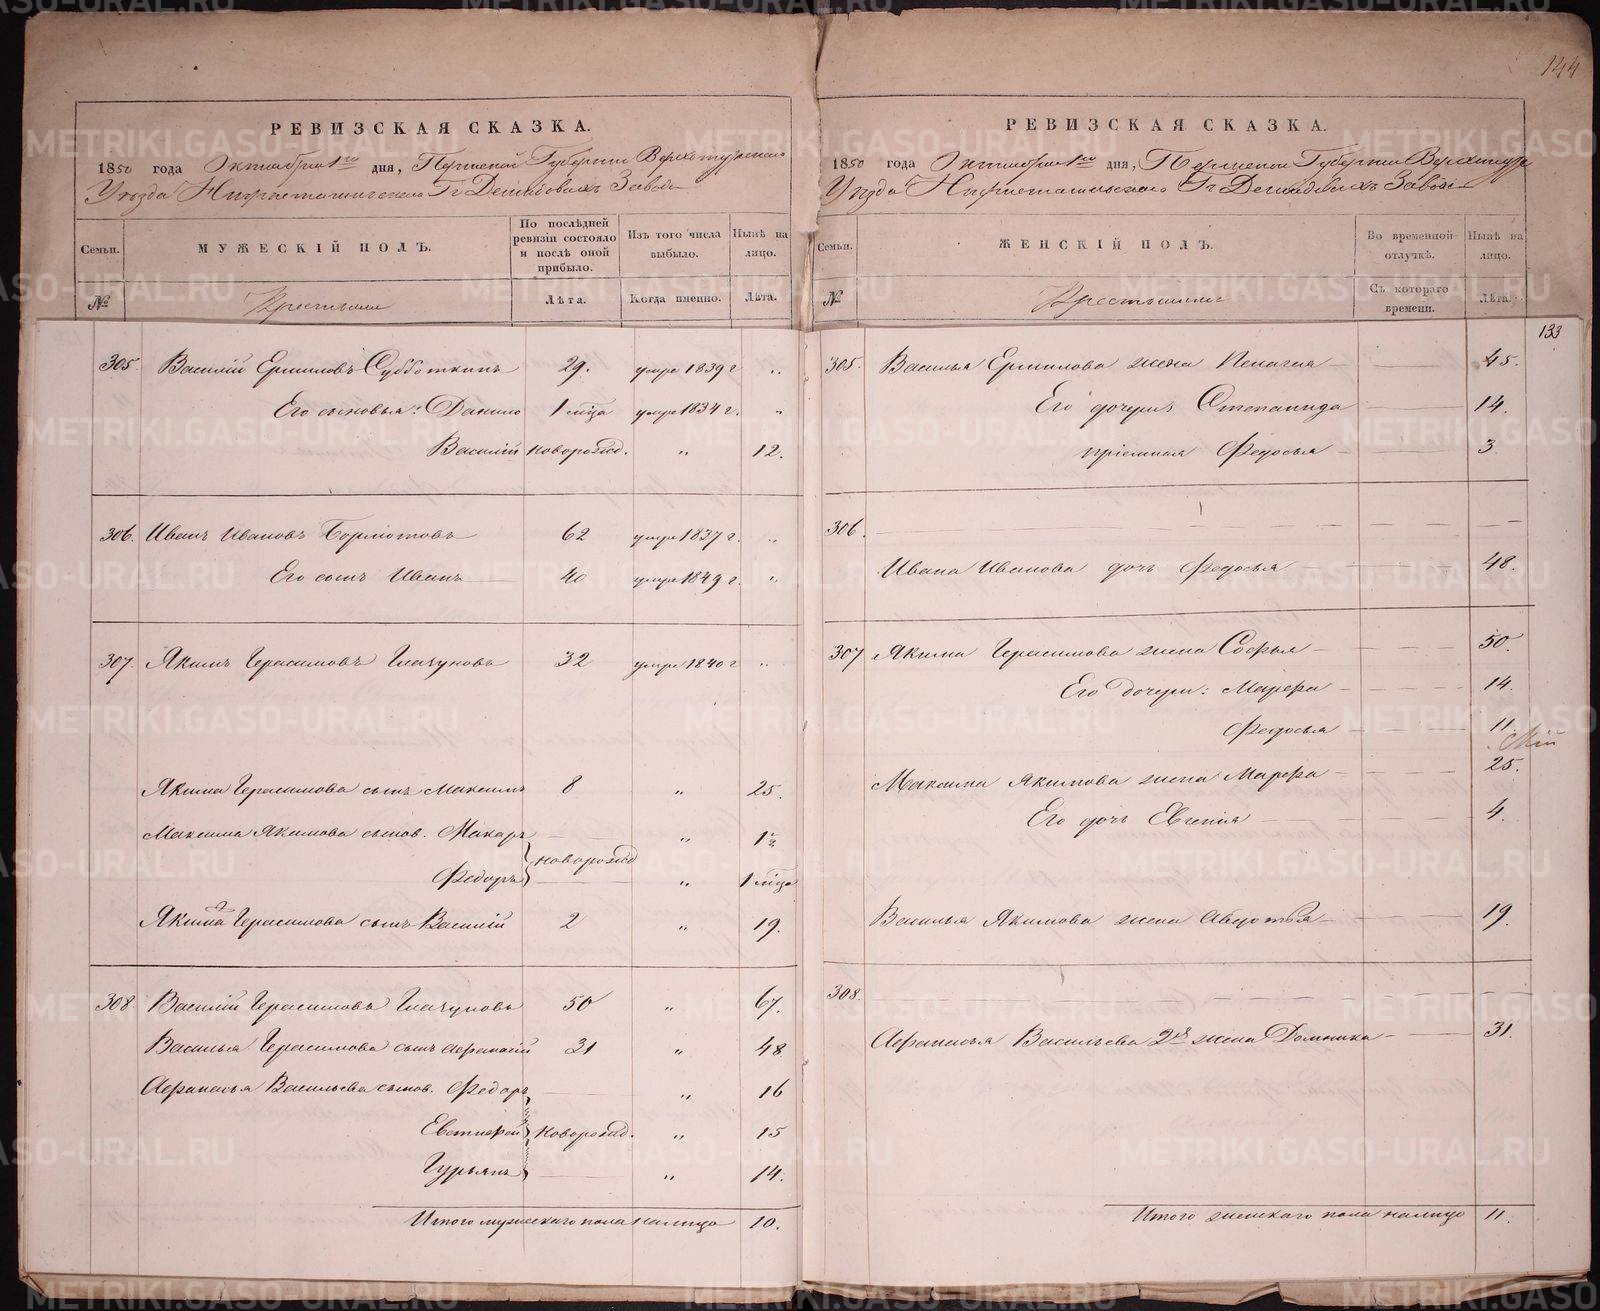 144
РЕВИЗСКАЯ СКАЗКА.
1850 года Октября 1го дня, Пермской Губерніи Верхотурскаго
Уезда Нижнетагильскаго Гг Демидовыхъ Завода
Семьи. МУЖЕСКІЙ ПОЛЪ. По послѣдней ревизіи состояло и послѣ оной прибыло. Изъ того числа выбыло. Нынѣ на лицо.
№ Крестьяне Лѣта. Когда именно. Лѣта.
305. Василій Ермиловъ Субботкинъ 29. умре 1839 г „
Его сыновья: Данило 1 мца умре 1834 г. „
Василій новорожд. „ 12.
306. Иванъ Ивановъ Бормотовъ 62 умре 1837 г. „
Его сынъ Иванъ 40 умре 1849 г. „
307. Якимъ Герасимовъ Глазуновъ 32 умре 1840 г „
Якима Герасимова сынъ Максимъ 8 „ 25.
Максима Якимова сынов. Макаръ „ 1½
новорожд
Федоръ „ 1 мца
Якима Герасимова сынъ Василій 2 „ 19.
308. Василій Герасимовъ Глазуновъ 50 „ 67.
Василья Герасимова сынъ Афанасій 31 „ 48
Афанасья Васильева сынов. Федоръ „ 16
Евстифей новорожд. „ 15
Гурьянъ „ 14.
Итого мужескаго пола налицо 10.
РЕВИЗСКАЯ СКАЗКА.
1850 года Октября 1го дня, Пермской Губерніи Верхотурс
Уезда Нижнетагильскаго Гг Демидовыхъ Завода
Семьи. ЖЕНСКІЙ ПОЛЪ. Во временной отлучкѣ. Нынѣ на лицо.
№ Крестьянки Съ котораго времени. Лѣта.
133
305. Василья Ермилова жена Пелагия 45.
Его дочери Степанида 14.
пріемная Федосья 3
306.
Ивана Иванова дочь Федосья 48.
307 Якима Герасимова жена Софья 50.
Его дочери: Марфа 14.
Федосья 11.
Максима Якимова жена Марфа 25.
Его дочь Евгенія 4.
Василья Якимова жена Авдотья 19.
308.
Афанасья Васильева 2я жена Домника 31.
Итого женскаго пола налицо 11.
METRIKI.GASO-URAL.RU